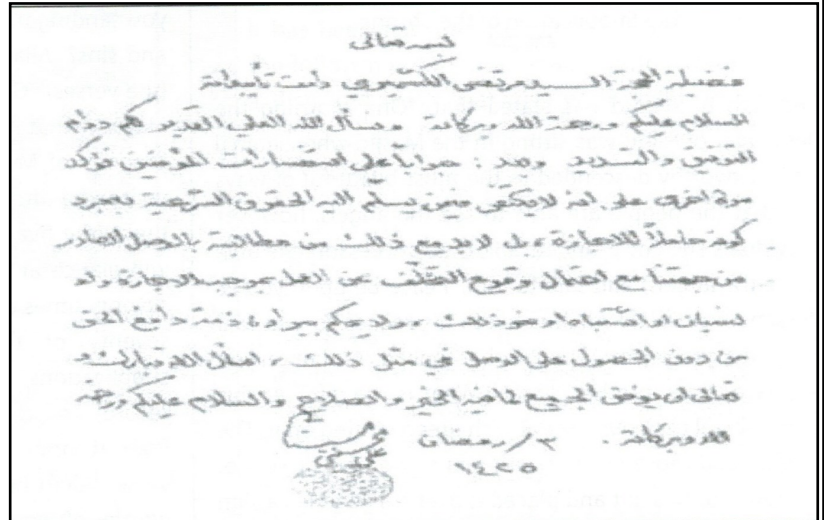 بسمه تعالى
فضيلة الحجة السيد مرتضى الكشميري دامت تأييداته
السلام عليكم ورحمة الله وبركاته ونسأل الله العلي القدير لكم دوام
التوفيق والتسديد وبعد : جواباً على استفسارات المؤمنين نؤكد
مرة اخرى على انه لا يكتفى فيمن يسلّم اليه الحقوق الشرعية بمجرد
كونه حاملاً للاجازة ، بل لابد مع ذلك من مطالبته بالوصل الصادر
من جهتنا مع احتمال وقوع التخلّف عن العمل بموجب الاجازة ولو
لنسيان او اشتباه او نحو ذلك ، ولا يحكم ببراءة ذمة دافع الحق
من دون الحصول على الوصل في مثل ذلك ، اسأل الله تبارك و
تعالى ان يوفق الجميع لما فيه الخير والصلاح والسلام عليكم ورحمة
الله وبركاته . ٣/ رمضان
١٤٢٥